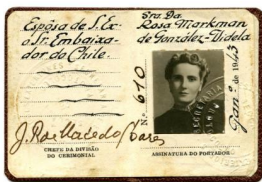 Espôsa de S. Ex
o Sr. Embaixa-
dor do Chile.
Sra. Da.
Rosa Markman
de González-Videla
N.º 610
Jan.º de 1943
CHEFE DA DIVISÃO
DO CERIMONIAL
ASSINATURA DO PORTADOR